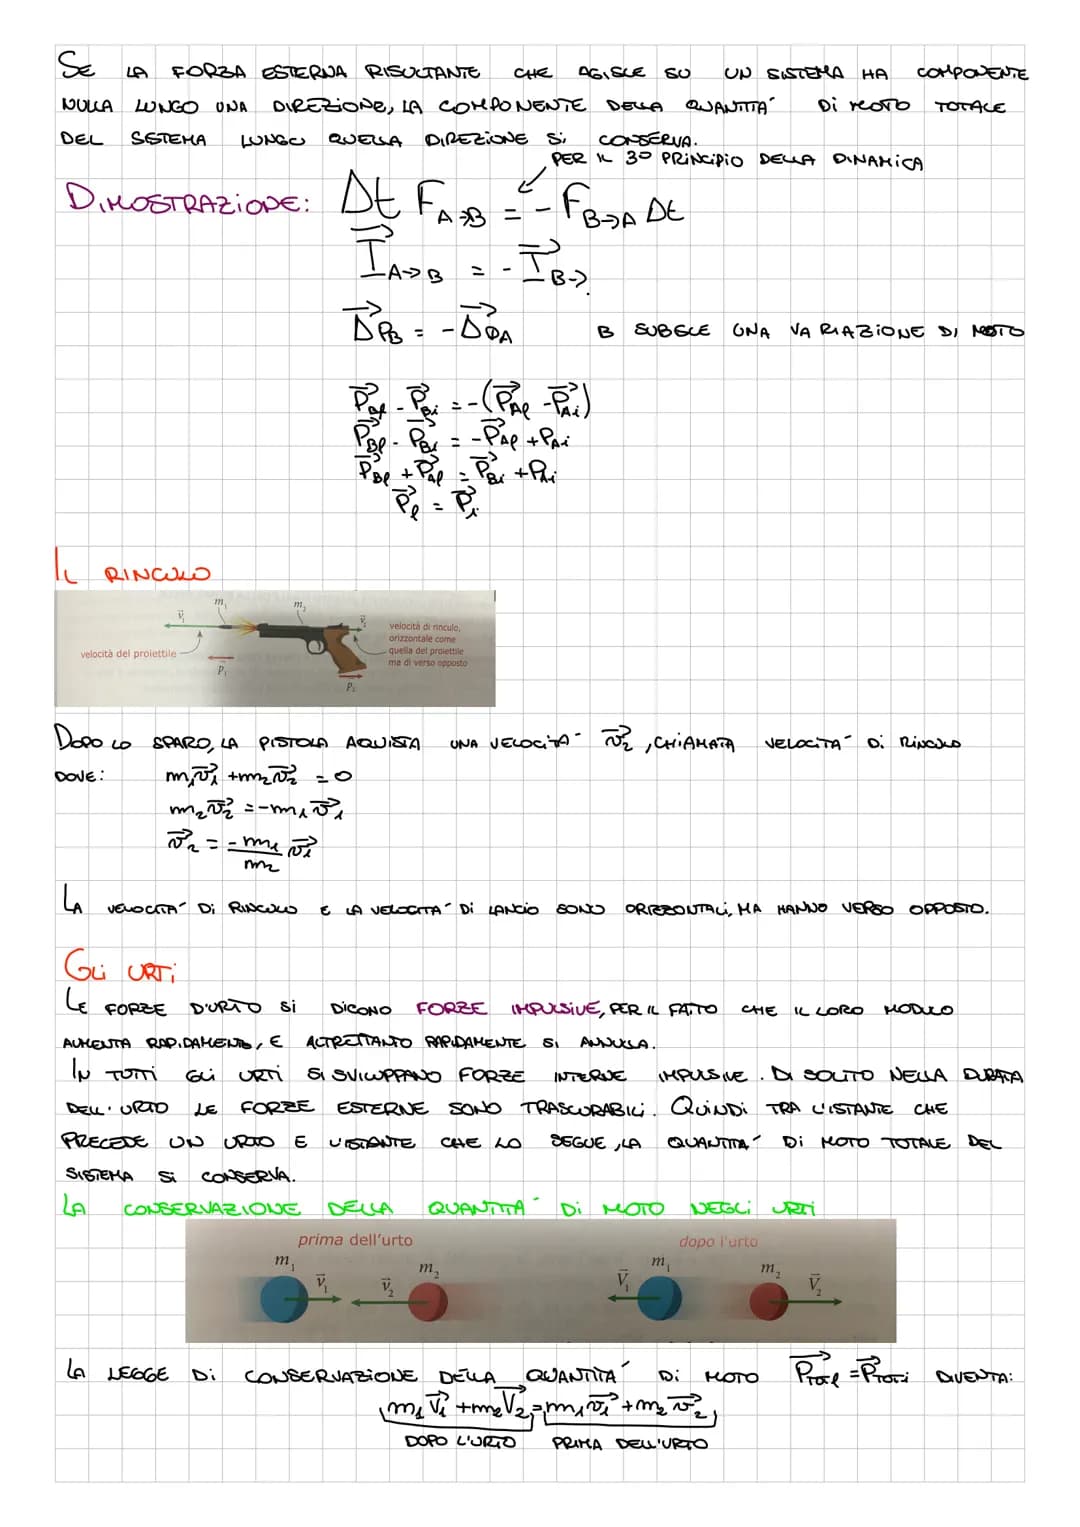 SE LA FORZA ESTERNA RISULTANTE CHE AGISCE SU UN SISTEMA HA COMPONENTE
NULLA LUNGO UNA DIREZIONE, LA COMPONENTE DELLA QUANTITA´ DI MOTO TOTALE
DEL SISTEMA LUNGO QUELLA DIREZIONE SI CONSERVA.
PER IL 3º PRINCIPIO DELLA DINAMICA
DIMOSTRAZIONE: Δt F_A→B = - F_B→A Δt
I⃗_A→B = - I⃗_B→
Δ⃗P_B = - Δ⃗P_A B SUBISCE UNA VARIAZIONE DI MOTO
P⃗_Bf - P⃗_Bi = -(P⃗_Af - P⃗_Ai)
P⃗_Bf - P⃗_Bi = -P⃗_Af + P_Ai
P⃗_Bf + P⃗_Af = P⃗_Bi + P_Ai
P⃗_f = P⃗_i
IL RINCULO
m₁ m₂
v⃗₁ v⃗₂
velocità di rinculo,
orizzontale come
quella del proiettile
ma di verso opposto
velocità del proiettile
p⃗₁
p⃗₂
DOPO LO SPARO, LA PISTOLA AQUISTA UNA VELOCITA´ v⃗₂, CHIAMATA VELOCITA´ DI RINCULO
DOVE: m₁v⃗₁ + m₂v⃗₂ = 0
m₂v⃗₂ = -m₁v⃗₁
v⃗₂ = -m₁/m₂ v⃗₁
LA VELOCITA´ DI RINCULO E LA VELOCITA´ DI LANCIO SONO ORIZZONTALI, MA HANNO VERSO OPPOSTO.
GLI URTI
LE FORZE D'URTO SI DICONO FORZE IMPULSIVE, PER IL FATTO CHE IL LORO MODULO
AUMENTA RAPIDAMENTE, E ALTRETTANTO RAPIDAMENTE SI ANNULLA.
IN TUTTI GLI URTI SI SVILUPPANO FORZE INTERNE IMPULSIVE. DI SOLITO NELLA DURATA
DELL'URTO LE FORZE ESTERNE SONO TRASCURABILI. QUINDI TRA L'ISTANTE CHE
PRECEDE UN URTO E L'ISTANTE CHE LO SEGUE, LA QUANTITA´ DI MOTO TOTALE DEL
SISTEMA SI CONSERVA.
LA CONSERVAZIONE DELLA QUANTITA´ DI MOTO NEGLI URTI
prima dell'urto dopo l'urto
m₁ v⃗₁ v⃗₂ m₂ V⃗₁ m₁ m₂ V⃗₂
LA LEGGE DI CONSERVAZIONE DELLA QUANTITA´ DI MOTO P⃗_TOTf = P⃗_TOTi DIVENTA:
m₁V⃗₁ + m₂V⃗₂ = m₁v⃗₁ + m₂v⃗₂
DOPO L'URTO PRIMA DELL'URTO